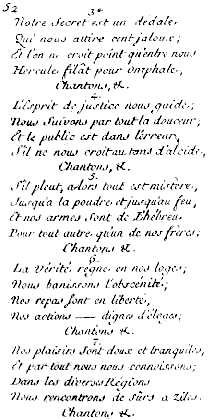 52
3e
Notre Secret est un dedale,
Qui nous attire cent jaloux;
Et l'on ne croit point qu'entre nous
Hercule filât pour omphale,
Chantons, &.
4.
L'Esprit de justice nous guide;
Nous Suivons par tout la douceur;
Et le public est dans l'erreur,
S'il ne nous croit au tans d'alcide,
Chantons, &.
5.
S'il pleut, alors tout est mistere,
Jusqu'a la poudre et jusqu'au feu,
Et nos armes Sont de l'hebreu
Pour tout autre qu'un de nos freres;
Chantons &.
6.
La Vérité régne en nos loges;
Nous banissons l'obscenité;
Nos repas sont en liberté,
Nos actions — dignes d'éloges;
Chantons &.
7.
Nos plaisirs Sont doux et tranquiles,
Et par tout nous nous connoissons;
Dans les diverses Régions
Nous rencontrons de Sûrs aziles.
Chantons &.